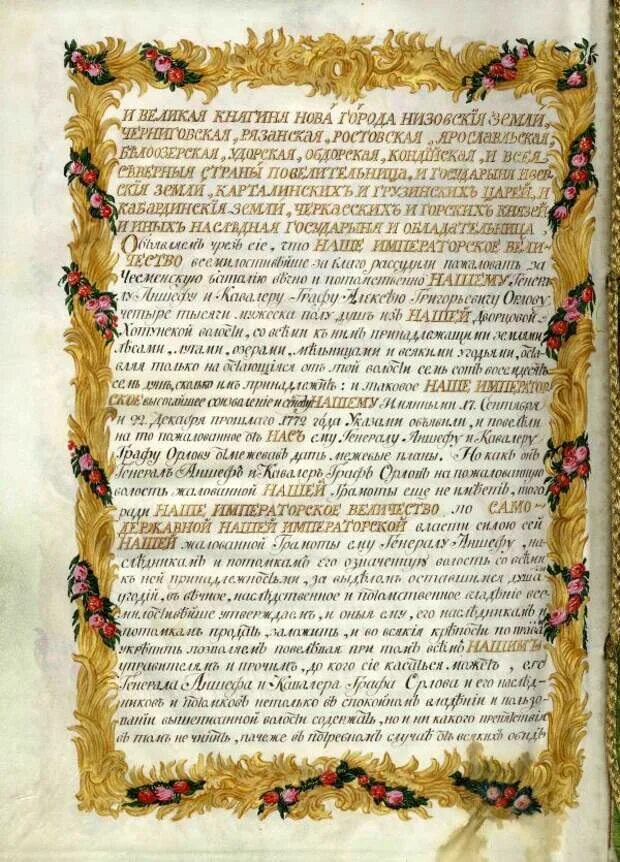 И ВЕЛИКАЯ КНЯГИНЯ НОВА ГОРОДА НИЗОВСКІЯ ЗЕМЛИ,
ЧЕРНИГОВСКАЯ, РЯЗАНСКАЯ, РОСТОВСКАЯ, ЯРОСЛАВЛЬСКАЯ,
БѢЛООЗЕРСКАЯ, УДОРСКАЯ, ОБДОРСКАЯ, КОНДІЙСКАЯ, И ВСЕЯ
СѢВЕРНЫЯ СТРАНЫ ПОВЕЛИТЕЛЬНИЦА, И ГОСУДАРЫНЯ ИВЕР-
СКІЯ ЗЕМЛИ, КАРТАЛИНСКИХЪ И ГРУЗИНСКИХЪ ЦАРЕЙ, И
КАБАРДИНСКІЯ ЗЕМЛИ, ЧЕРКАССКИХЪ И ГОРСКИХЪ КНЯЗЕЙ
И ИНЫХЪ НАСЛѢДНАЯ ГОСУДАРЫНЯ И ОБЛАДАТЕЛЬНИЦА,
Объявляемъ чрезъ сіе, что НАШЕ ИМПЕРАТОРСКОЕ ВЕЛИ-
ЧЕСТВО всемилостивѣйше за благо разсудили пожаловать за
Чесменскую баталію вѣчно и потомственно НАШЕМУ Генера-
лу Аншефу и Кавалеру Графу Алѣксѣю Григорьевичу Орлову
четыре тысячи мужеска полу душъ изъ НАШЕЙ Дворцовой
Хотунской волости, со всѣми къ нимъ принадлежащими землями
лѣсами, лугами, озерами, мѣльницами и всякими угодьями, оста-
вляя только на остающіяся отъ той волости семь сотъ восемдесятъ
семь душъ, сколько имъ принадлежитъ: и таковое НАШЕ ИМПЕРАТОР-
СКОЕ высочайшее соизволеніе и НАШЕМУ Имянными 17. Сентября
и 22. Декабря прошлаго 1772 года Указами объявили, и повелѣли
на то пожалованное отъ НАСЪ ему Генералу Аншефу и Кавалеру
Графу Орлову отмежевавъ дать межевые планы. Но какъ онъ
Генералъ Аншефъ и Кавалеръ Графъ Орловъ на пожалованную
волость жалованной НАШЕЙ Грамоты еще не имѣетъ, того
ради НАШЕ ИМПЕРАТОРСКОЕ ВЕЛИЧЕСТВО по САМО-
ДЕРЖАВНОЙ НАШЕЙ ИМПЕРАТОРСКОЙ власти силою сей
НАШЕЙ жалованной Грамоты ему Генералу Аншефу, на-
слѣдникамъ и потомкамъ его означенную волость со всѣми
къ ней принадлежностьми, за выдѣломъ оставшимся душа
угодій, въ вѣчное, наслѣдственное и потомственное владѣніе все-
милостивѣйше утверждаемъ, и оныя ему, его наслѣдникамъ и
потомкамъ продать, заложить, и во всякія крѣпости по праву
укрѣпить позволяемъ повелѣвая при томъ всѣмъ НАШИМЪ
управителямъ и прочимъ, до кого сіе касаться можетъ, его
Генерала Аншефа и Кавалера Графа Орлова и его наслѣд-
никовъ и потомковъ нетолько въ спокойномъ владѣніи и пользо-
ваніи вышеписанной волости содержать, но и ни какого препятствія
въ томъ не чинить, паче же въ потребномъ случаѣ отъ всякихъ обидъ